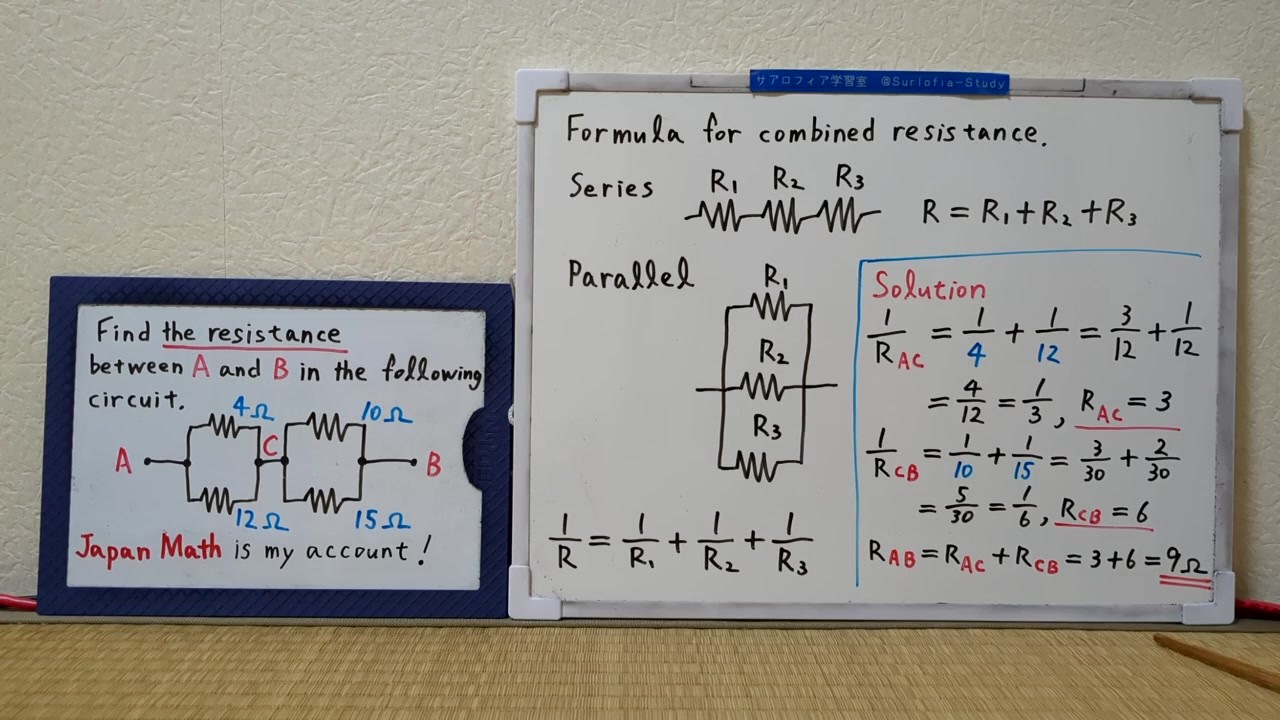 Find the resistance
between A and B in the following
circuit.
4Ω 10Ω
A C B
12Ω 15Ω
Japan Math is my account!
サアロフィア学習室 @Surlofia-Study
Formula for combined resistance.
Series R₁ R₂ R₃ R = R₁ + R₂ + R₃
Parallel
R₁
R₂
R₃
1/R = 1/R₁ + 1/R₂ + 1/R₃
Solution
1/R_AC = 1/4 + 1/12 = 3/12 + 1/12
= 4/12 = 1/3, R_AC = 3
1/R_CB = 1/10 + 1/15 = 3/30 + 2/30
= 5/30 = 1/6, R_CB = 6
R_AB = R_AC + R_CB = 3 + 6 = 9Ω